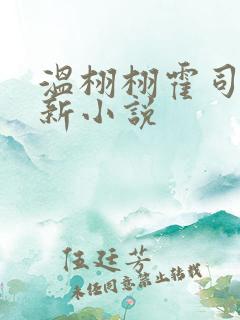 温栩栩霍司
新小说
伍廷芳
未经同意禁止转载